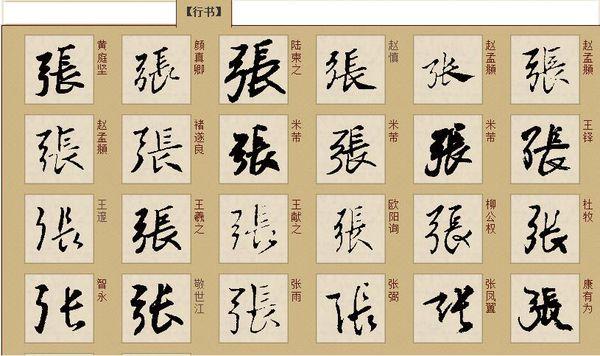 【行书】
張 黄庭坚 張 颜真卿 張 陆柬之 張 赵慎 張 赵孟頫 張 赵孟頫
張 赵孟頫 張 褚遂良 張 米芾 張 米芾 張 米芾 張 王铎
張 王邃 張 王羲之 張 王献之 張 欧阳询 張 柳公权 張 杜牧
張 智永 張 敬世江 張 张雨 張 张弼 張 张凤翼 張 康有为